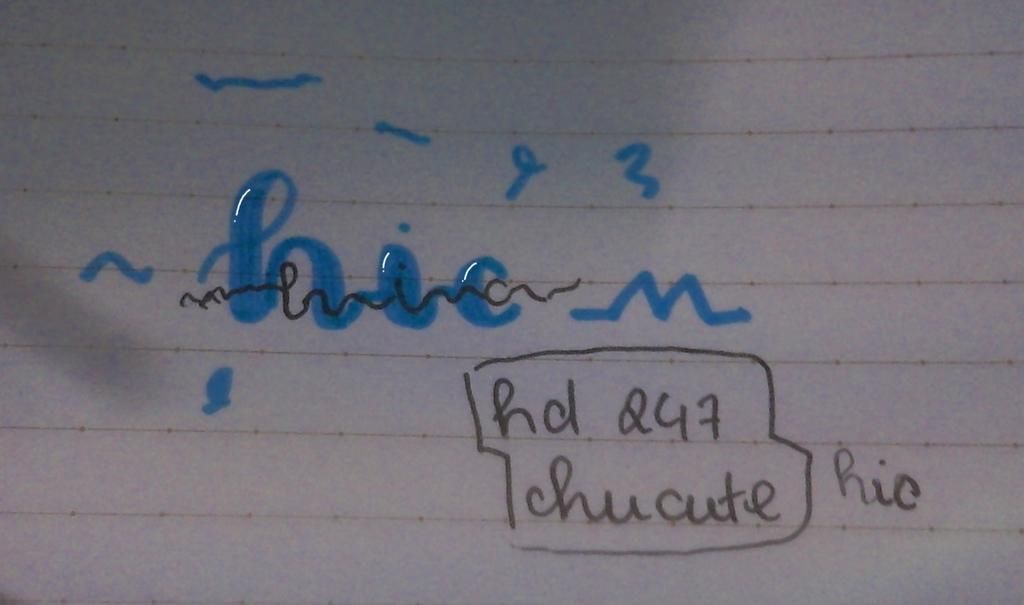 hic
hd 247
chucute hic